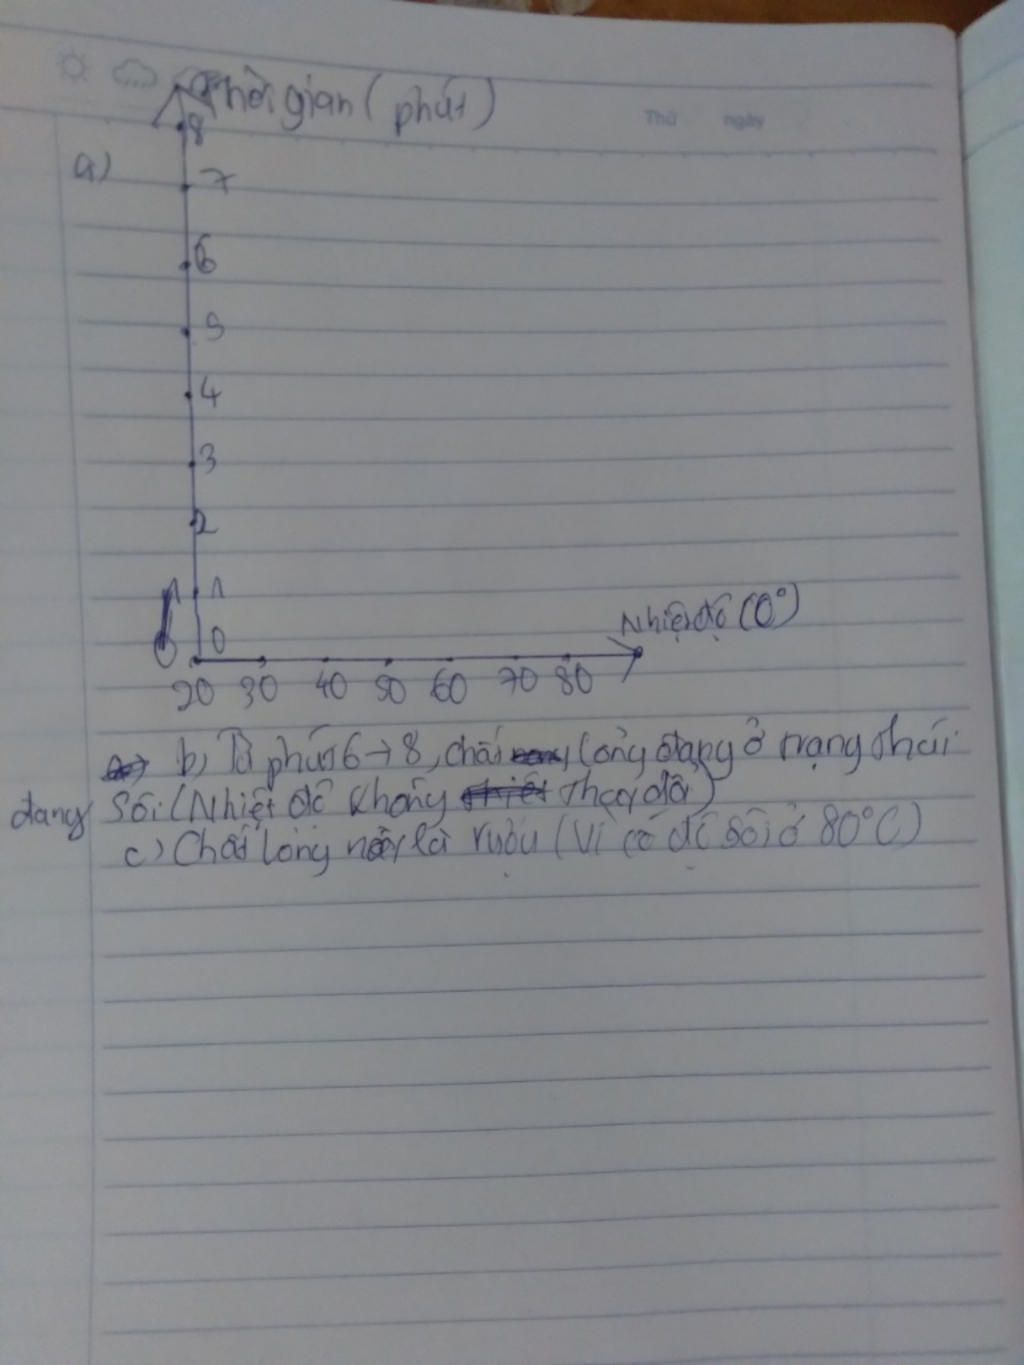 Thời gian (phút)
Thứ ngày
8
a)
7
6
5
4
3
2
1 1
Nhiệt độ (0°)
0 0
20 30 40 50 60 70 80
b, Từ phút 6 → 8, chất lỏng đang ở trạng thái
đang sôi (Nhiệt độ không thay đổi)
c) Chất lỏng này là rượu (Vì có độ sôi ở 80°C)